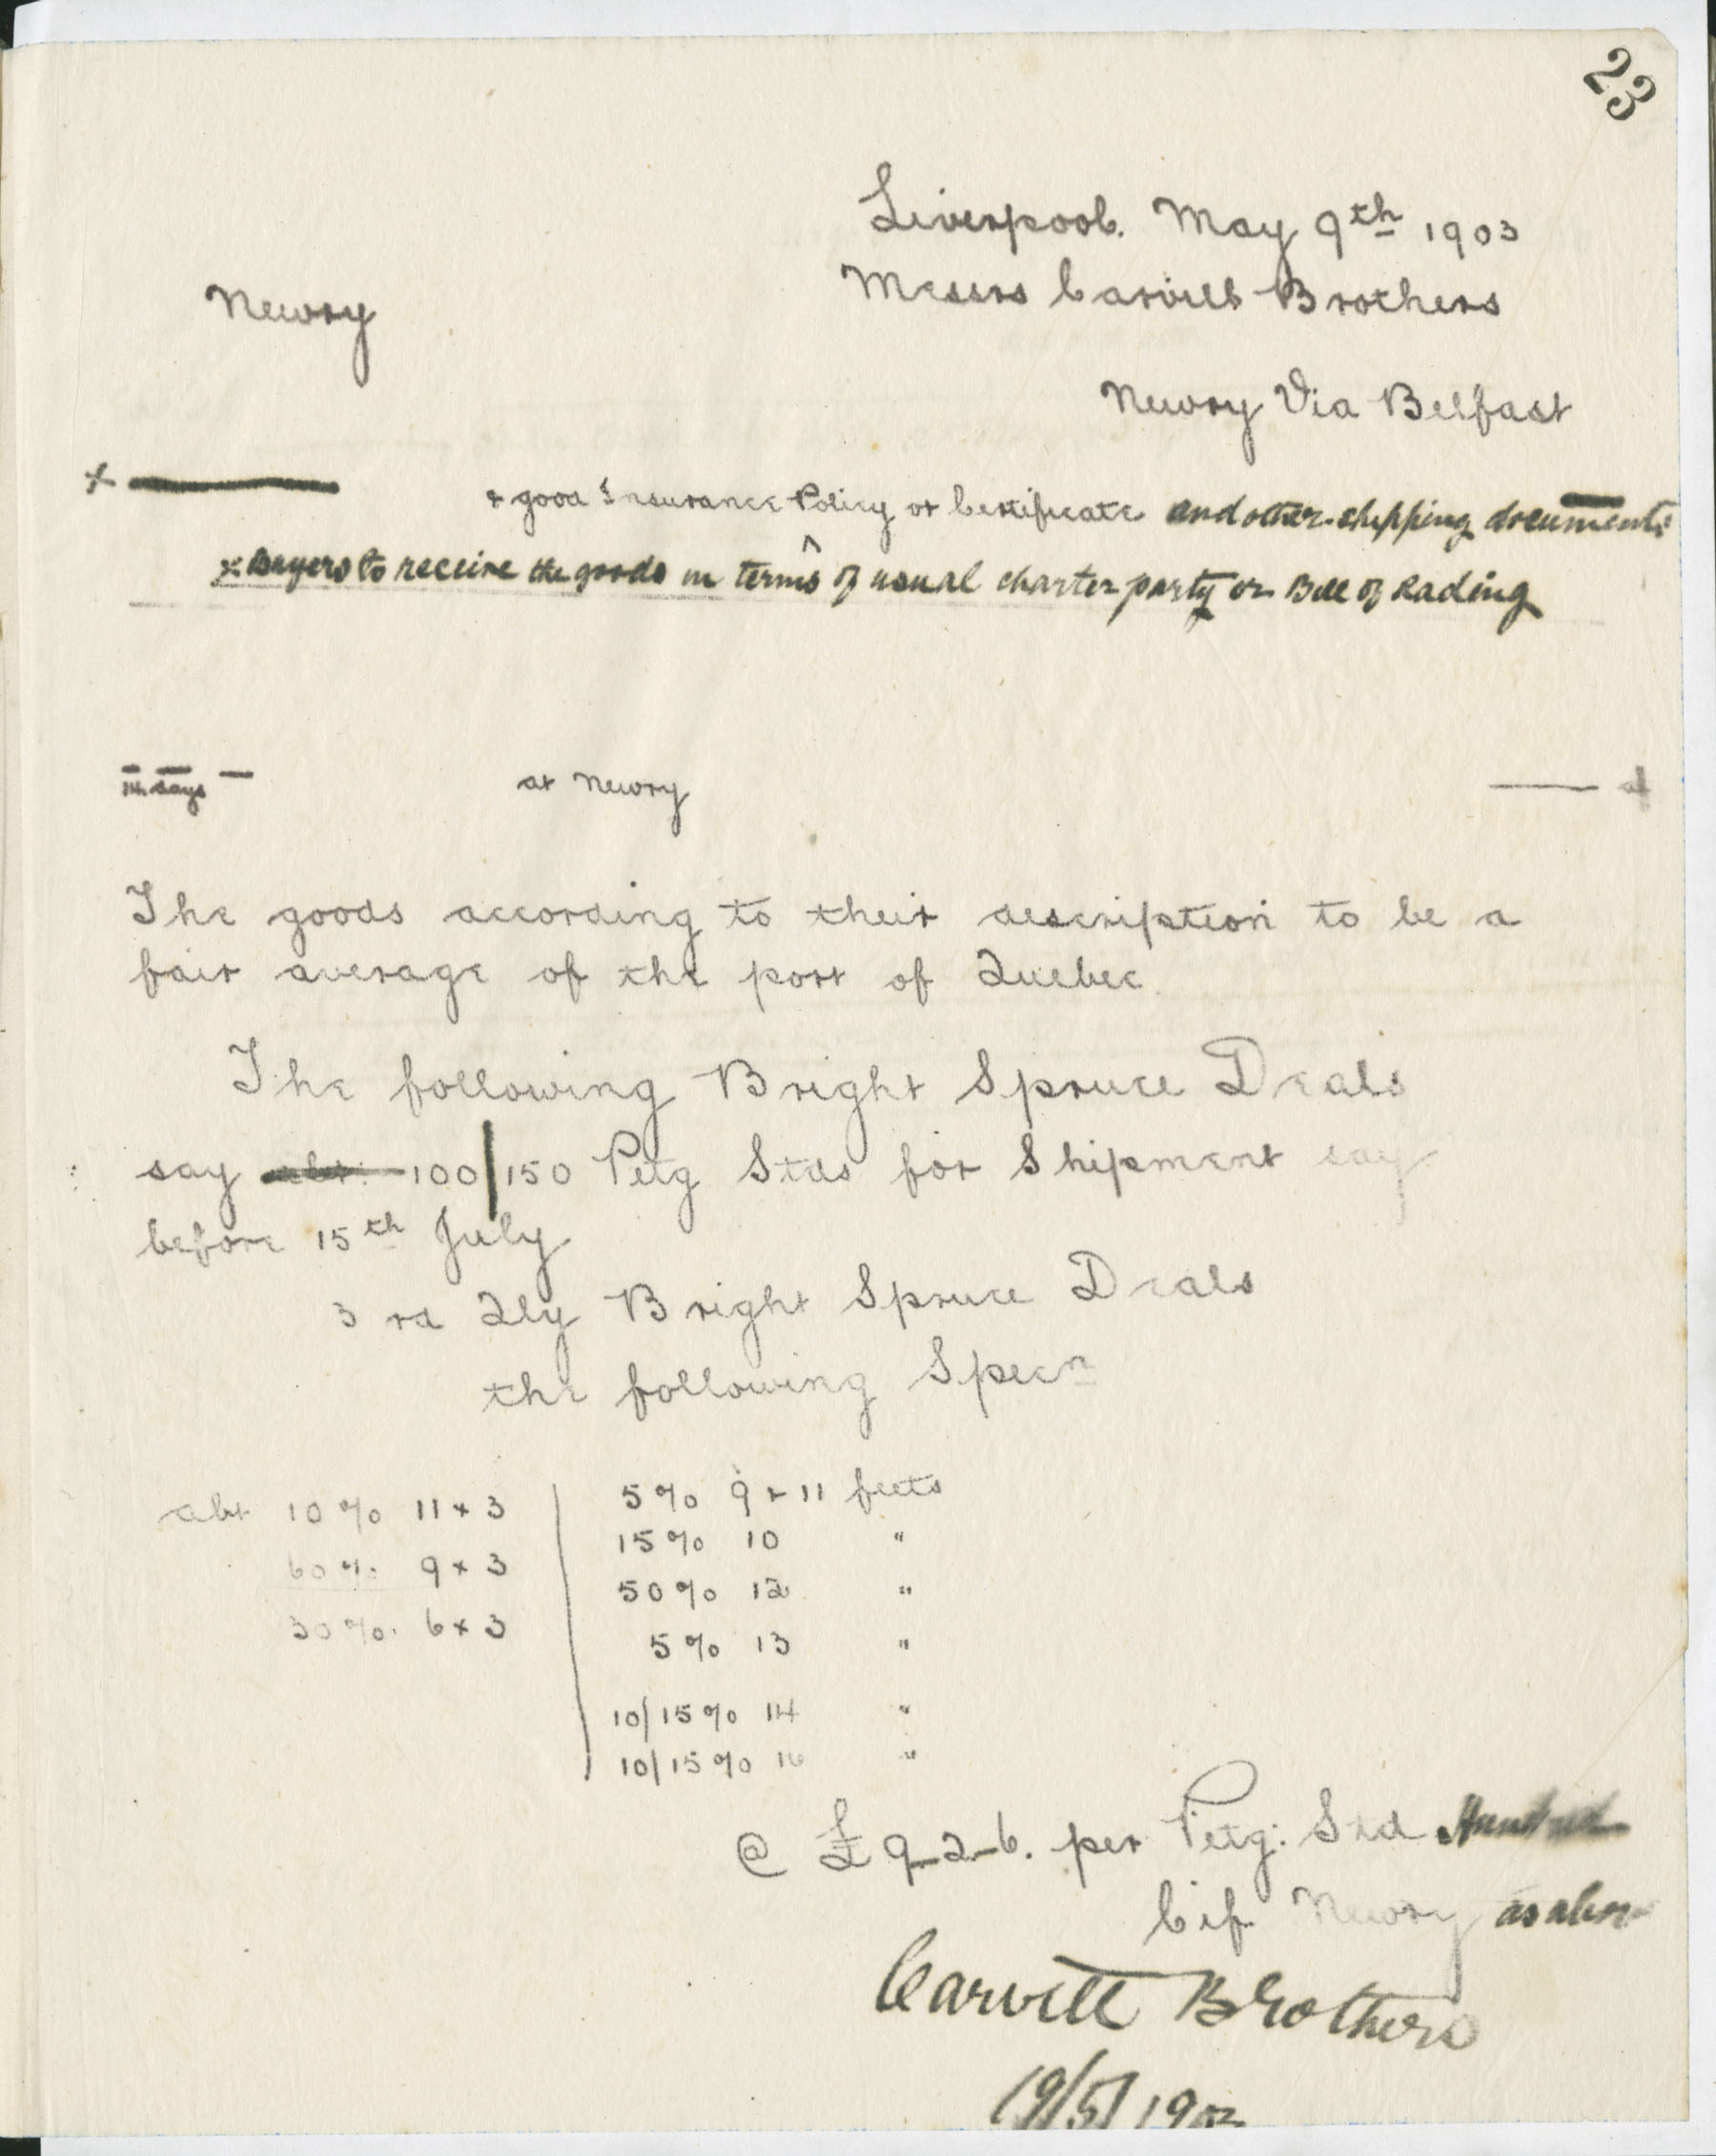 23
Liverpool. May 9th 1903
Messrs Carvill Brothers
Newry
Newry Via Belfast
& good Insurance Policy or Certificate and other shipping documents
x Buyers to receive the goods in terms of usual charter party or Bill of Lading
14 days
at Newry
The goods according to their description to be a
fair average of the port of Quebec
The following Bright Spruce Deals
say abt. 100/150 Petg Stds for Shipment say
before 15th July
3 rd Qly Bright Spruce Deals
the following Specn
abt 10% 11 x 3 5% 9 & 11 feets
15% 10 "
60% 9 x 3
50% 12 "
30% 6 x 3
5% 13 "
10/15% 14 "
10/15% 16 "
@ £9-2-6. per Petg: Std Hundred
Cif Newry as above
Carvill Brothers
19/5/1903